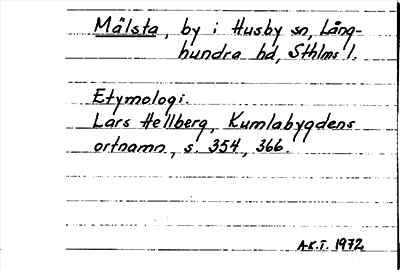 Mälsta, by i Husby sn, Lång-
hundra hd, Sthlms l.
Etymologi.
Lars Hellberg, Kumlabygdens
ortnamn, s. 354, 366.
A.K.T. 1972